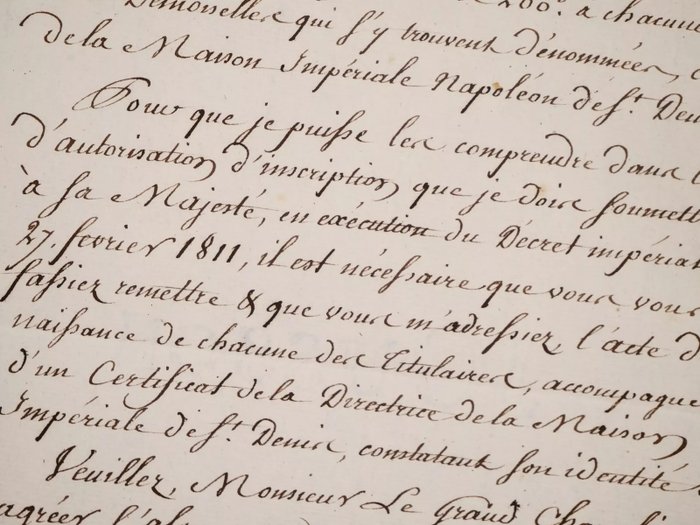 Demoiselles qui s'y trouvent dénommées,
de la Maison Impériale Napoléon de St. Den
Pour que je puisse les comprendre dans l
d'autorisation d'inscription que je dois soumett
à sa Majesté, en exécution du Décret impérial
27. fevrier 1811, il est nécessaire que vous vous
fassiez remettre & que vous m'adressiez, l'acte d
naissance de chacune des Titulaires, accompagné
d'un Certificat de la Directrice de la Maison
Impériale de St. Denis, constatant son identité
Veuillez, Monsieur Le Grand
agréer l'